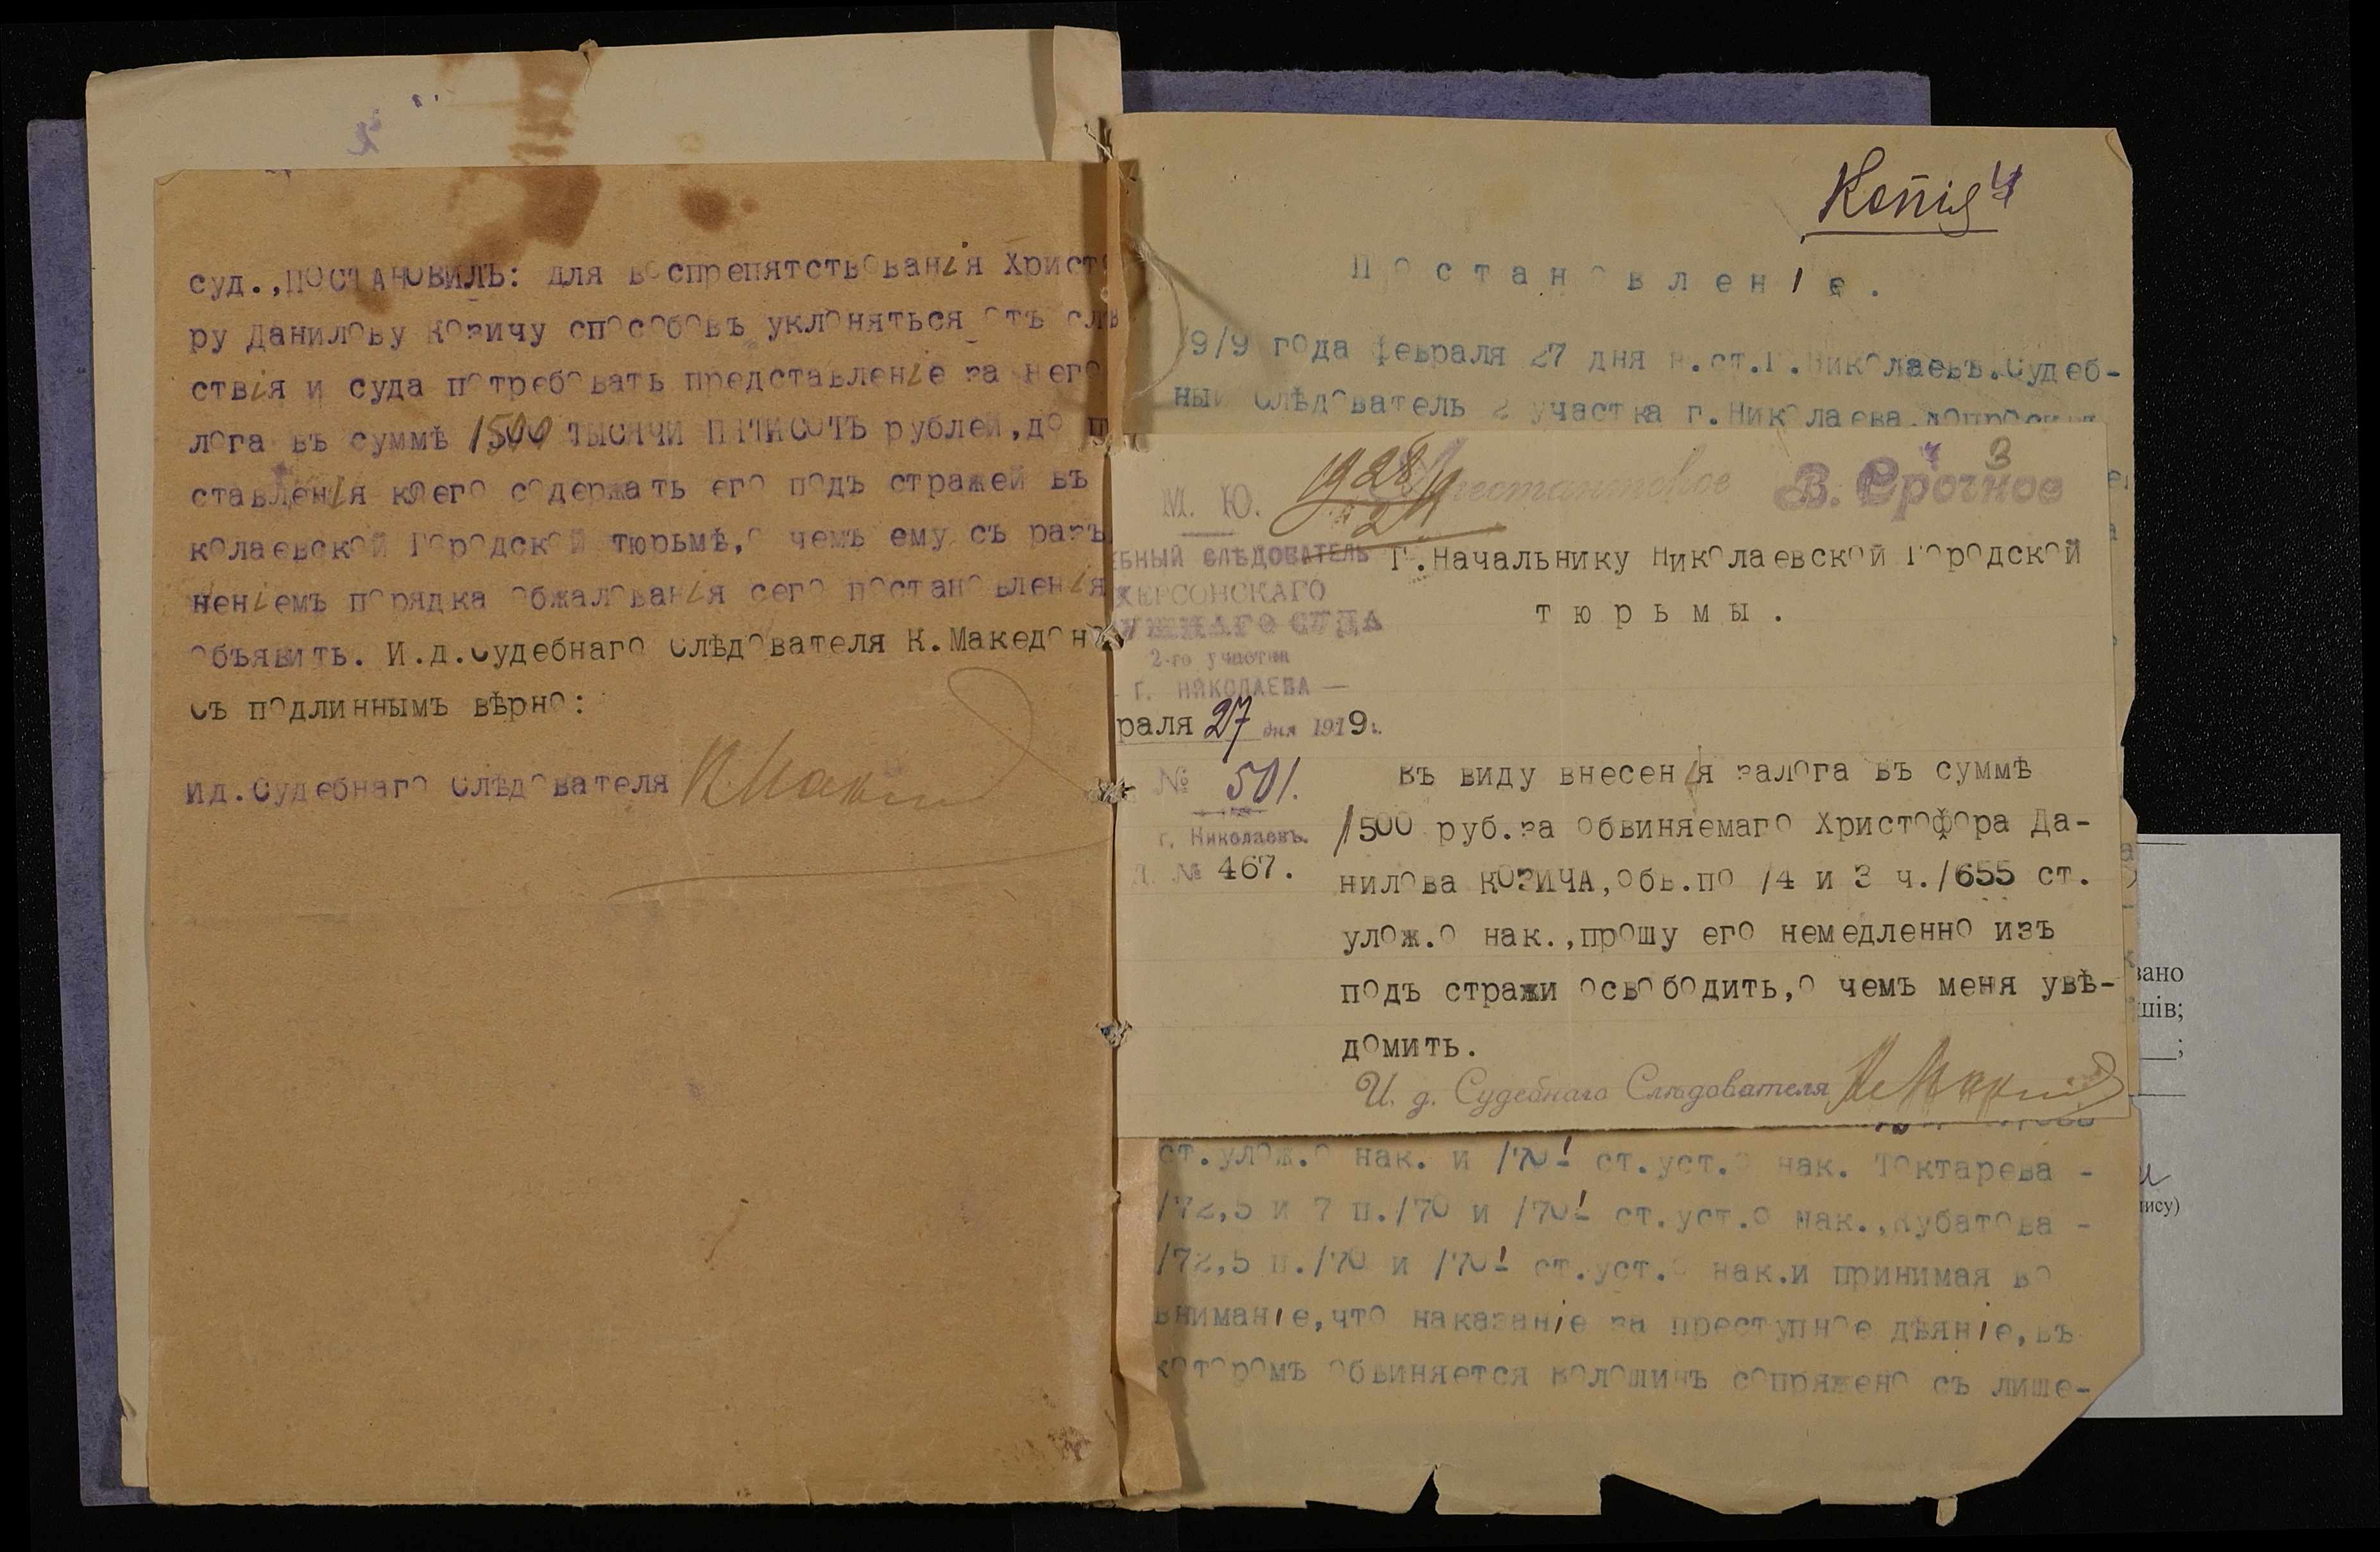 суд.,ПОСТАНОВИЛЪ: для воспрепятствованія Христо
ру Данилову Козичу способовъ уклоняться отъ слѣ
ствія и суда потребовать представленіе за него
лога въ суммѣ 1500 ТЫСЯЧИ ПЯТИСОТЪ рублей,до п
ставленія коего содержать его подъ стражей въ
колаевской Городской тюрьмѣ,о чемъ ему съ разъ
неніемъ порядка обжалованія сего постановленія
объявить. И.д.Судебнаго Слѣдователя К.Македон
Съ подлиннымъ вѣрно:
Ид.Судебнаго Слѣдователя
Копія 4
Постановленіе.
19/9 года февраля 27 дня н.ст.Г.Николаевъ.Судеб-
ный Слѣдователь 2 участка г.Николаева,допросивъ
М. Ю.
28/2
Арестантское
В. Срочное
3
ЕБНЫЙ СЛѢДОВАТЕЛЬ
ХЕРСОНСКАГО
УЖНАГО СУДА
2-го участка
Г. НИКОЛАЕВА —
раля 27 дня 1919г.
№ 501.
г. Николаевъ.
Д. № 467.
Г.Начальнику Николаевской Городской
тюрьмы.
Въ виду внесенія залога въ суммѣ
/500 руб.за обвиняемаго Христофора Да-
нилова КОЗИЧА,обв.по /4 и 3 ч./655 ст.
улож.о нак.,прошу его немедленно изъ
подъ стражи освободить,о чемъ меня увѣ-
домить.
И. д. Судебнаго Слѣдователя
ст.улож.о нак. и /70¹ ст.уст.о нак. Токтарева -
/72,5 и 7 п./70 и /70¹ ст.уст.о нак.,Кубатова -
/72,5 п./70 и /70¹ ст.уст.о нак.и принимая во
вниманіе,что наказаніе за преступное дѣяніе,въ
которомъ обвиняется Волошинъ сопряжено съ лише-
вано
шів;
ису)